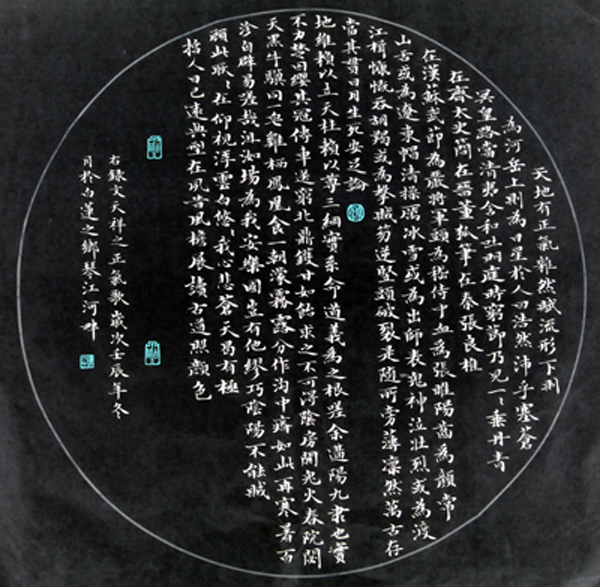 天地有正氣雜然賦流形下則
為河岳上則為日星於人曰浩然沛乎塞蒼
冥皇路當清夷含和吐明庭時窮節乃見一一垂丹青
在齊太史簡在晉董狐筆在秦張良椎
在漢蘇武節為嚴將軍頭為嵇侍中血為張睢陽齒為顏常
山舌或為遼東帽清操厲冰雪或為出師表鬼神泣壯烈或為渡
江楫慷慨吞胡羯或為擊賊笏逆豎頭破裂是所旁薄凜然萬古存
當其貫日月生死安足論
地維賴以立天柱賴以尊三綱實系命道義為之根嗟余遘陽九隸也實
不力楚囚纓其冠傳車送窮北鼎鑊甘如飴求之不可得陰房闃鬼火春院閟
天黑牛驥同一皂雞栖鳳凰食一朝濛霧露分作溝中瘠如此再寒暑百
沴自辟易嗟哉沮洳場為我安樂國豈有他繆巧陰陽不能賊
顧此耿耿在仰視浮雲白悠悠我心悲蒼天曷有極
哲人日已遠典型在夙昔風檐展讀古道照顏色
右錄文天祥之正氣歌歲次壬辰年冬
月於白蓮之鄉琴江河畔